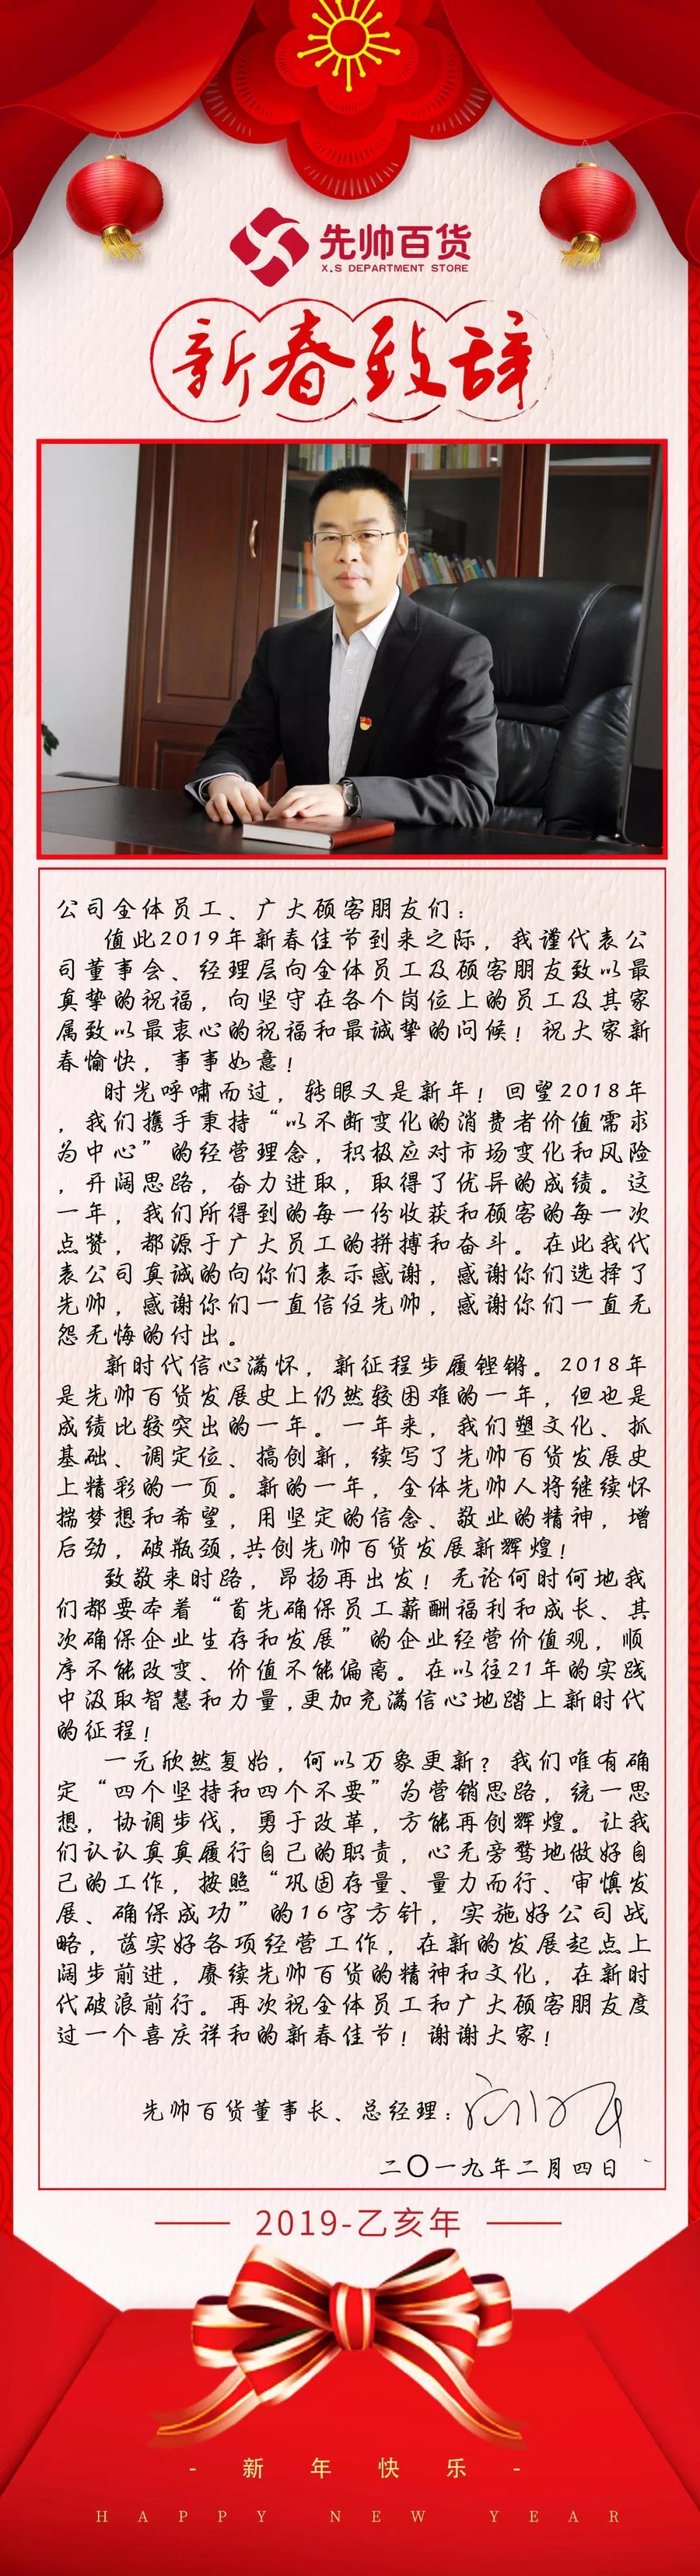 先帅百货
X.S DEPARTMENT STORE
新春致辞
公司全体员工、广大顾客朋友们：
值此2019年新春佳节到来之际，我谨代表公
司董事会、经理层向全体员工及顾客朋友致以最
真挚的祝福，向坚守在各个岗位上的员工及其家
属致以最衷心的祝福和最诚挚的问候！祝大家新
春愉快，事事如意！
时光呼啸而过，转眼又是新年！回望2018年
，我们携手秉持“以不断变化的消费者价值需求
为中心”的经营理念，积极应对市场变化和风险
，开阔思路，奋力进取，取得了优异的成绩。这
一年，我们所得到的每一份收获和顾客的每一次
点赞，都源于广大员工的拼搏和奋斗。在此我代
表公司真诚的向你们表示感谢，感谢你们选择了
先帅，感谢你们一直信任先帅，感谢你们一直无
怨无悔的付出。
新时代信心满怀，新征程步履铿锵。2018年
是先帅百货发展史上仍然较困难的一年，但也是
成绩比较突出的一年。一年来，我们塑文化、抓
基础、调定位、搞创新，续写了先帅百货发展史
上精彩的一页。新的一年，全体先帅人将继续怀
揣梦想和希望，用坚定的信念、敬业的精神，增
后劲，破瓶颈,共创先帅百货发展新辉煌！
致敬来时路，昂扬再出发！无论何时何地我
们都要本着“首先确保员工薪酬福利和成长、其
次确保企业生存和发展”的企业经营价值观，顺
序不能改变、价值不能偏离。在以往21年的实践
中汲取智慧和力量,更加充满信心地踏上新时代
的征程！
一元欣然复始，何以万象更新？我们唯有确
定“四个坚持和四个不要”为营销思路，统一思
想，协调步伐，勇于改革，方能再创辉煌。让我
们认认真真履行自己的职责，心无旁骛地做好自
己的工作，按照“巩固存量、量力而行、审慎发
展、确保成功”的16字方针，实施好公司战
略，落实好各项经营工作，在新的发展起点上
阔步前进，赓续先帅百货的精神和文化，在新时
代破浪前行。再次祝全体员工和广大顾客朋友度
过一个喜庆祥和的新春佳节！谢谢大家！
先帅百货董事长、总经理：
二〇一九年二月四日
2019-乙亥年
- 新年快乐 -
HAPPY NEW YEAR